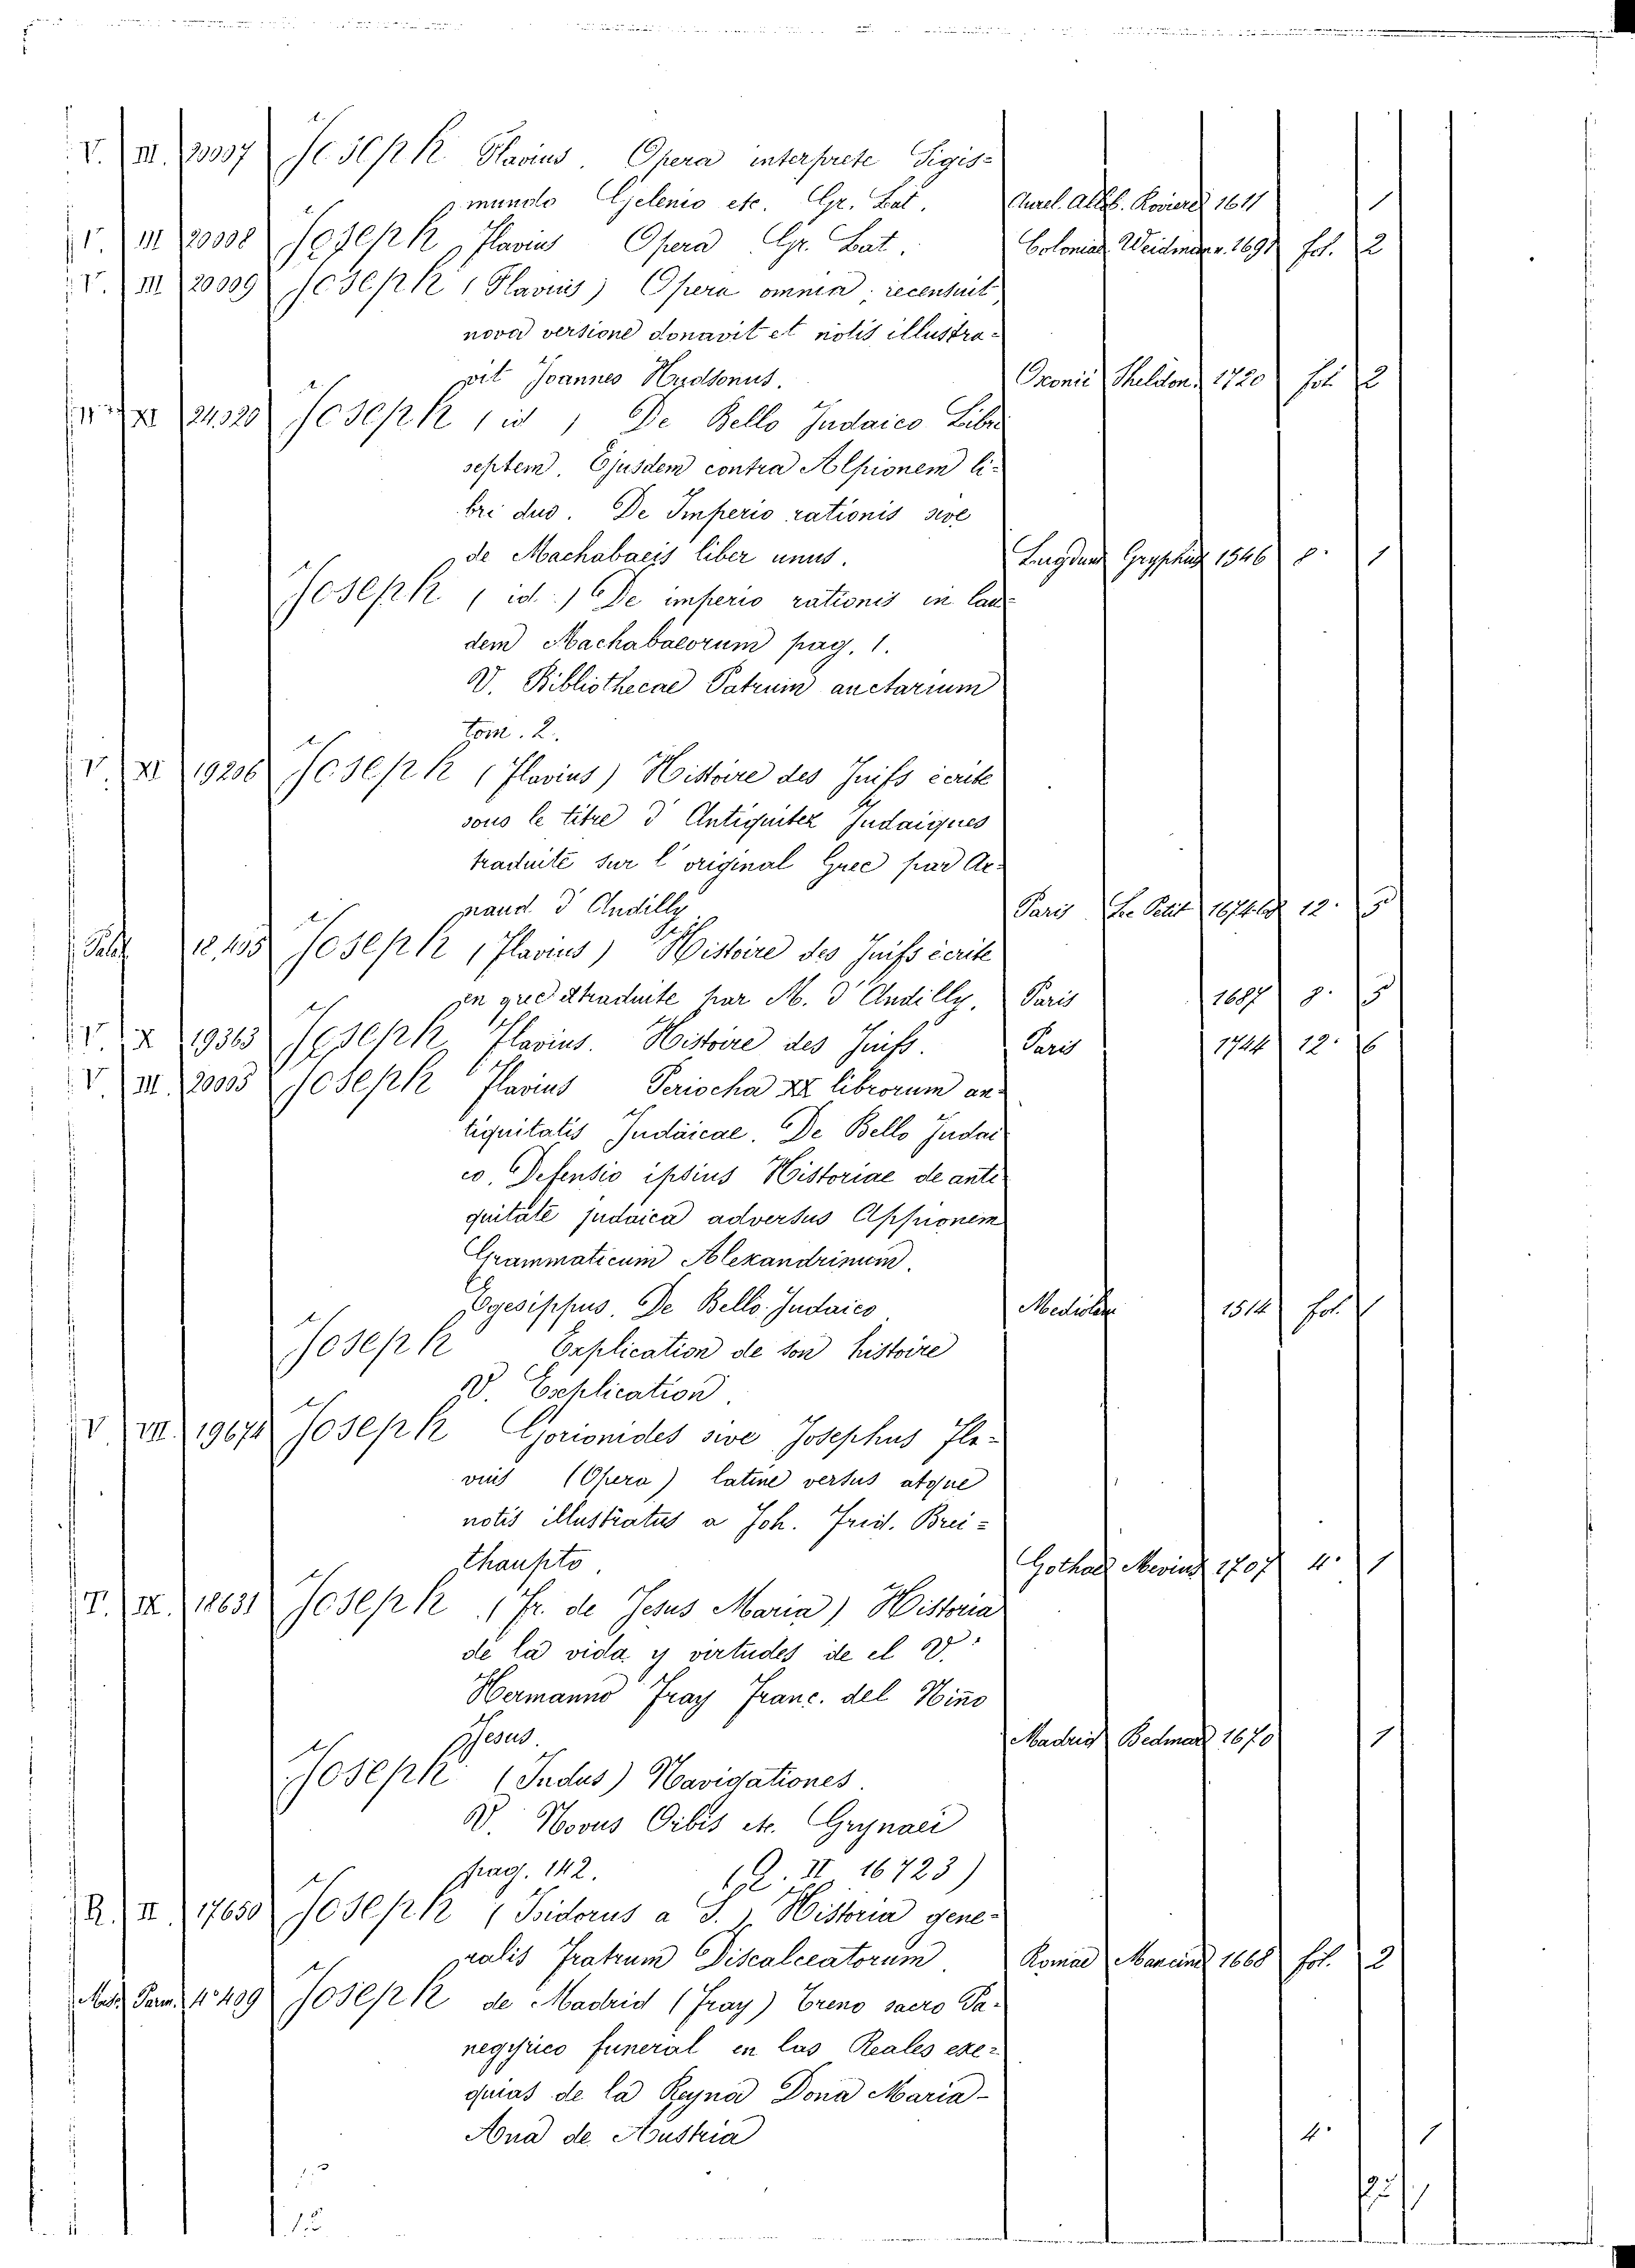 V. III. 20007 Joseph Flavius. Opera interprete Sigis-
mundo Gelenio etc. Gr. Lat. Aurel. Allob. Roviere 1611 1
V. III 20008 Joseph Flavius Opera Gr. Lat. Coloniae Weidmann. 1691 fol. 2
V. III 20009 Joseph (Flavius) Opera omnia recensuit
nova versione donavit et notis illustra-
vit Joannes Hudsonus. Oxonii Sheldon. 1720 fol. 2
XI 24320 Joseph (id) De Bello Judaico Libri
septem. Ejusdem contra Alpionem li-
bri duo. De Imperio rationis sive
de Machabaeis liber unus. Lugduni Gryphius 1546 8. 1
Joseph (id.) De imperio rationis in lau-
dem Machabaeorum pag. 1.
V. Bibliothecae Patrum auctarium
tom. 2.
V. XI 19206 Joseph (Flavius) Histoire des Juifs écrite
sous le titre d'Antiquitez Judaiques
traduite sur l'original Grec par Ar-
naud d'Andilly Paris Le Petit 12. 5
18,405 Joseph (Flavius) Histoire des Juifs écrite
en grec traduite par M. d'Andilly. Paris 1687 8. 5
V. X 19363 Joseph Flavius. Histoire des Juifs. Paris 1744 12. 6
V. III. 20005 Joseph Flavius Periocha XX librorum an-
tiquitatis Judaicae. De Bello Judai-
co. Defensio ipsius Historiae de anti-
quitate judaica adversus Appionem
Grammaticum Alexandrinum.
Egesippus. De Bello Judaico Mediolan 1514 fol. 1
Joseph Explication de son histoire
V. Explication.
V. VII. 19671 Joseph Gorionides sive Josephus Fla-
vius (Opera) latine versus atque
notis illustratus a Joh. Frid. Brei-
thaupto. Gothae Mevius 1707 4. 1
T. IX. 18631 Joseph (Fr. de Jesus Maria) Historia
de la vida y virtudes de el V.
Hermanno Fray Franc. del Niño
Jesus. Madrid Bedmar 1670 1
Joseph (Indus) Navigationes.
V. Novus Orbis etc. Grynaei
pag. 142. (Q. II 16723)
R. II 17650 Joseph (Isidorus a S.) Historia gene-
ralis Fratrum Discalceatorum Romae Mancini 1668 fol. 2
Joseph de Madrid (Fray) Treno sacro Pa-
negyrico funeral en las Reales exe-
quias de la Reyna Dona Maria-
Ana de Austria 4. 1
15